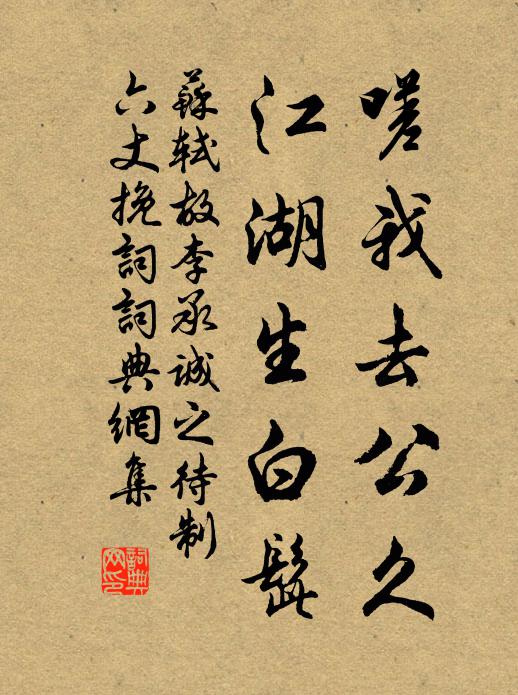 嗟我去公久
江湖生白髭
蘇軾故李承誠之待制
六丈挽詞詞典網集
詞典
网印